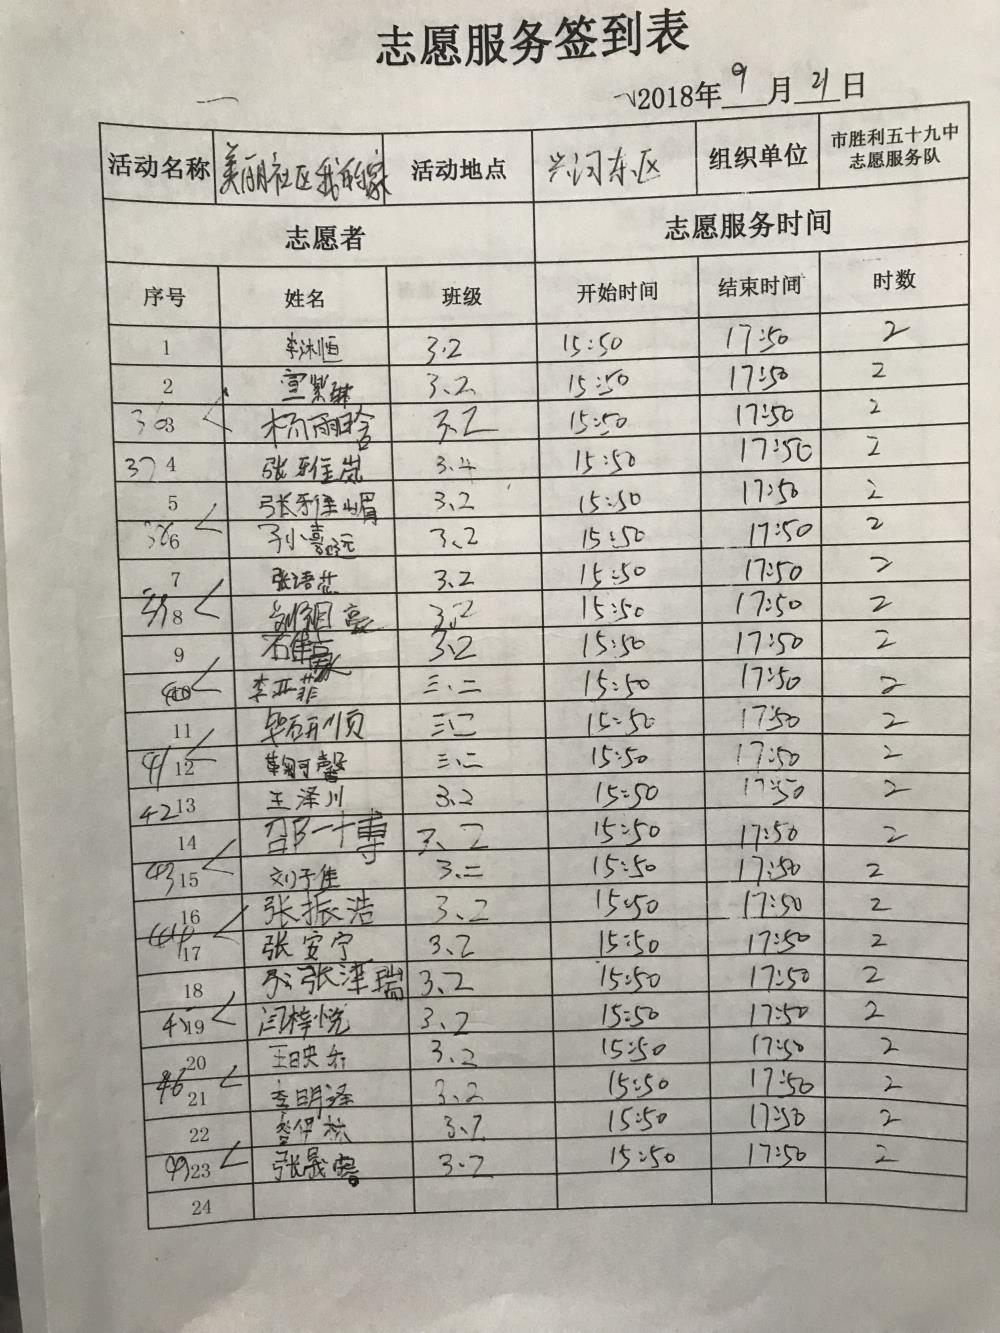 志愿服务签到表
2018年9月21日
活动名称 美丽社区我的家 活动地点 兴河东区 组织单位 市胜利五十九中志愿服务队
志愿者 志愿服务时间
序号 姓名 班级 开始时间 结束时间 时数
1 李沐恒 3.2 15:50 17:50 2
2 3.2 15:50 17:50 2
3 杨雨晗 3.2 15:50 17:50 2
37 4 张雅岚 3.4 15:50 17:50 2
5 张雅媚 3.2 15:50 17:50 2
6 孙小喜远 3.2 15:50 17:50 2
7 张语芯 3.2 15:50 17:50 2
8 3.2 15:50 17:50 2
9 3.2 15:50 17:50 2
10 李亚菲 三.二 15:50 17:50 2
11 三.二 15:50 17:50 2
41 12 三.二 15:50 17:50 2
42 13 王泽川 3.2 15:50 17:50 2
14 邵一博 3.2 15:50 17:50 2
43 15 刘子佳 3.二 15:50 17:50 2
16 张振浩 3.2 15:50 17:50 2
44 17 张安宁 3.2 15:50 17:50 2
18 张津瑞 3.2 15:50 17:50 2
45 19 闫梓悦 3.2 15:50 17:50 2
20 王映乔 3.2 15:50 17:50 2
46 21 李明泽 3.2 15:50 17:50 2
22 3.2 15:50 17:50 2
23 3.2 15:50 17:50 2
24